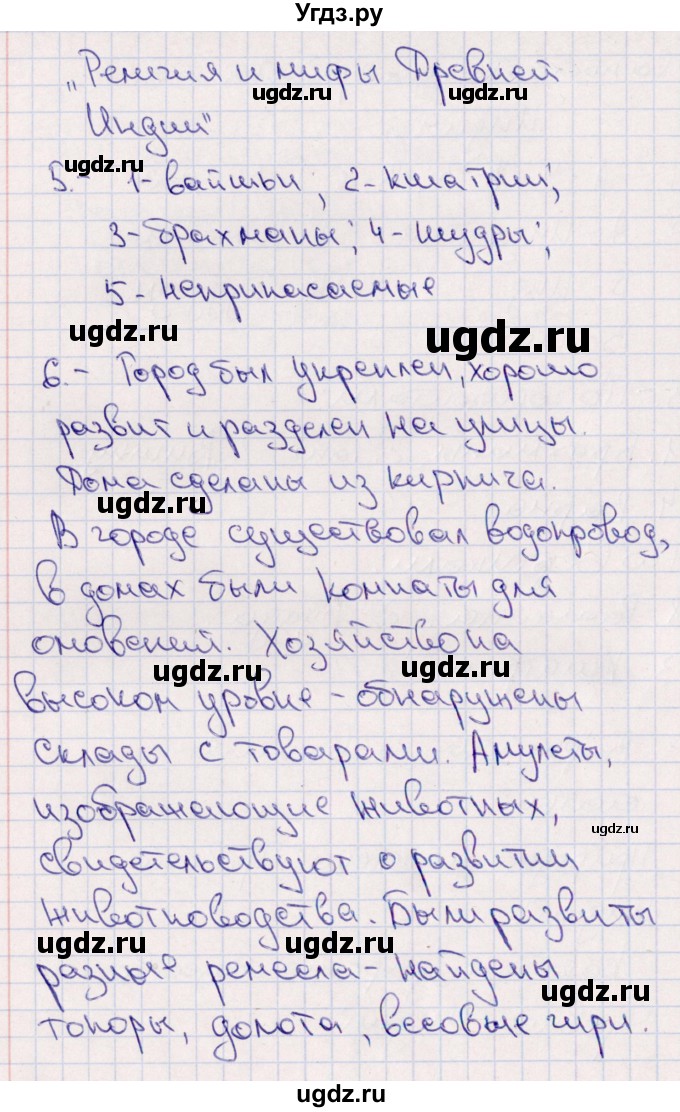 Угдз.ру
"Религия и мифы Древней
ugdz.ru ugdz.ru
Индии"
ugdz.ru
5.- 1-вайшьи; 2-кшатрии;
3-брахманы; 4-шудры;
5-неприкасаемые
ugdz.ru ugdz.ru
6.- Город был укреплен, хорошо
развит и разделен на улицы.
Дома сделаны из кирпича.
ugdz.ru
В городе существовал водопровод,
в домах были комнаты для
омовений. Хозяйство на
ugdz.ru ugdz.ru
высоком уровне - обнаружены
склады с товарами. Амулеты,
изображающие животных,
ugdz.ru
свидетельствуют о развитии
животноводства. Были развиты
ugdz.ru ugdz.ru
разные ремесла - найдены
ugdz.ru
топоры, долота, весовые гири.
ugdz.ru